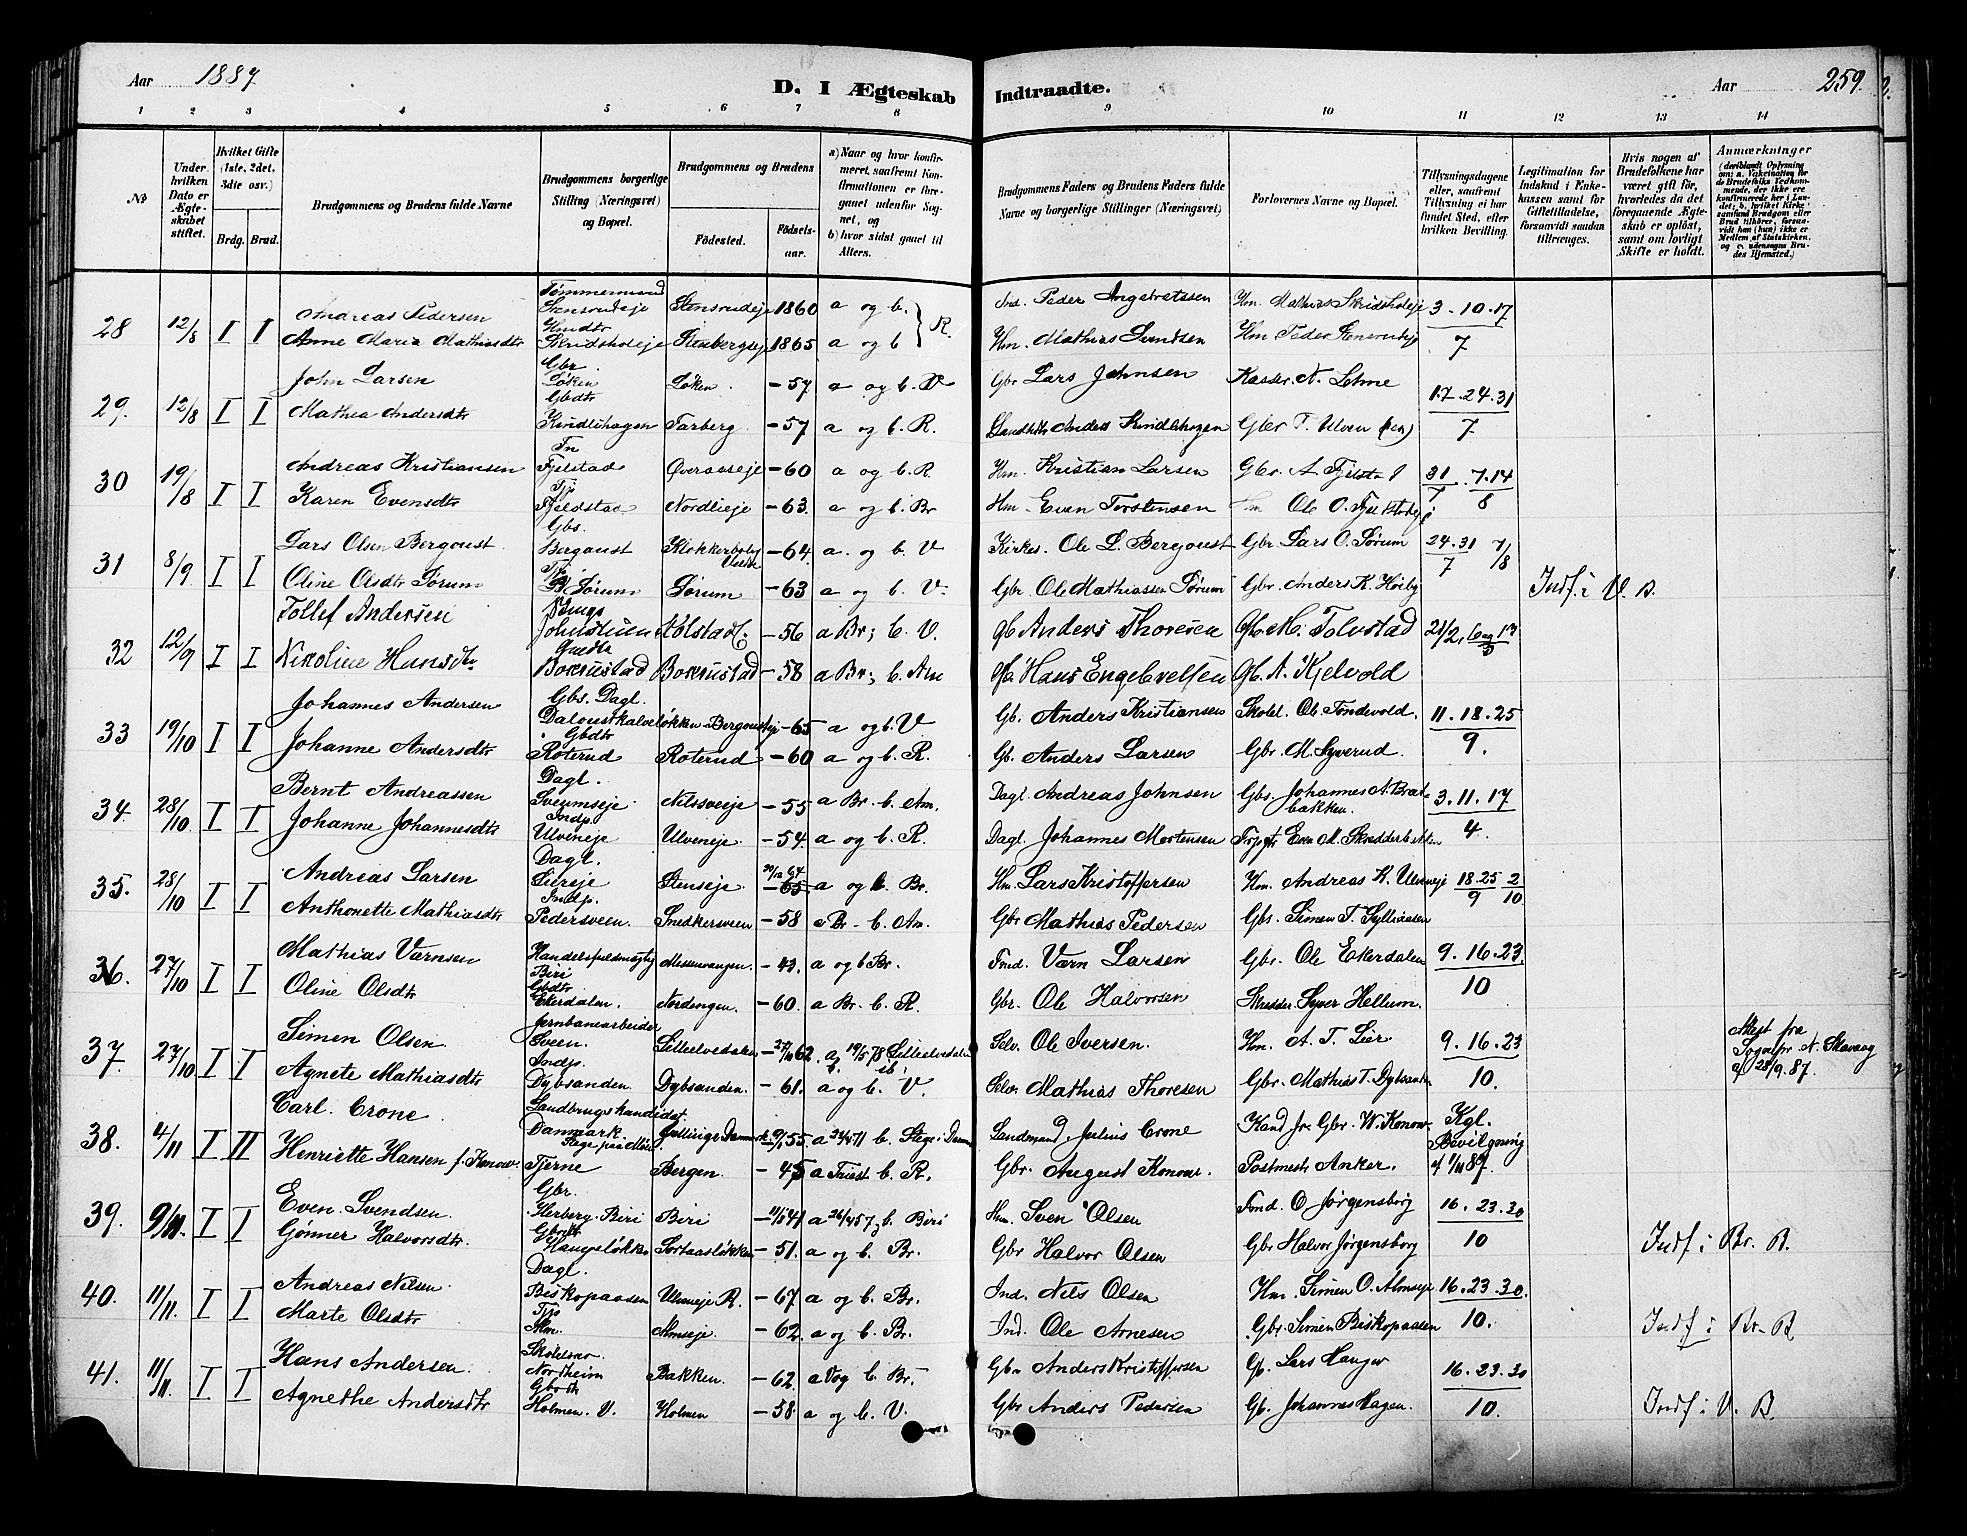 Aar 1887.
D. I Ægteskab Indtraadte.
Aar 259.
1 2 3 4 5 6 7 8 9 10 11 12 13 14
No
Under hvilken Dato er Ægteskabet stiftet.
Hvilket Gifte (1ste, 2det, 3die osv.)
Brdg. Brud.
Brudgommens og Brudens fulde Navne
Brudgommens borgerlige Stilling (Næringsvei) og Bopæl.
Brudgommens og Brudens
Fødested. Fødselsaar.
a) Naar og hvor konfirmeret, saafremt Konfirmationen er foregaaet udenfor Sognet, og b) hvor sidst gaaet til Alters.
Brudgommens Faders og Brudens Faders fulde Navne og borgerlige Stillinger (Næringsvei)
Forlovernes Navne og Bopæl.
Tillysningsdagene eller, saafremt Tillysning ei har fundet Sted, efter hvilken Bevilling.
Legitimation for Indskud i Enkekassen samt for Giftetilladelse, forsaavidt saadan tiltrænges.
Hvis nogen af Brudefolkene har været gift før, hvorledes da det foregaaende Ægteskab er opløst, samt om lovligt Skifte er holdt.
Anmærkninger
28 12/8 I I Andreas Pedersen Tømmermand Stensrudeje Stensrudeje 1860 a og b. R. Ind. Peder Ingebretssen Hm. Mathias Skridsholeje 3.10.17
Anne Maria Mathiasdtr Hmdtr Skridsholeje 1865 a og b Hm. Mathias Svendsen Hm Peder Stensrudeje 7
29. 12/8 I I John Larsen Gbr. Løken Løken. -57 a og b. V Gbr Lars Johnsen Kasser. N. Lehne 17.24.31
Mathea Andersdtr Gbdtr Kindlihagen Farberg. -57 a og b. R. Anders Kindlihagen Gbr T. Ulven (sen) 7
30 19/8 I I Andreas Kristiansen Fjelstad Overaaseje -60 a og b. R. Hm. Kristian Larsen Gbr. A. Fjelstad 31 7.14
Karen Evensdtr Tjp Fjeldstad Nordlieje -63. a og b. Br Hm. Even Torstensen Ole O. 7 8
31 8/9 I I Lars Olsen Bergoust Gbs. Bergoust -64. a. og b. V Kirkes. Ole L. Bergoust Gbr. Lars O. Sørum 24.31 7/8
Oline Olsdtr Sørum Sørum Sørum -63 a og b. V. Gbr. Ole Mathiassen Sørum Gbr. Anders K. Høiby 7 Indf. i V. B.
32 12/9 I I Tollef Andersen Kolstad -56 a Br; b. V. Gb Anders Thoresen Gb. M. Tolvstad
Nikoline Hansdtr Borkustad Borkustad -58 a Br; b. Am Gb Hans Engebretsen Gb. A. Kjelvold
33 19/10 I I Johannes Andersen Gbs. Dagl. -65 a og b. V Gb. Anders Kristiansen Skolel. Ole Tondevold. 11.18.25
Johanne Andersdtr Gbdtr Roterud Roterud -60 a og b. R. Gb. Anders Larsen Gbr. M. Syverud. 9.
34. 28/10 I I Bernt Andreassen Dagl. Sveumseje Nilsveeje -55 a Br. b. Am. Dagl. Andreas Johnsen Gbs. Johannes A. Bratbakken. 3.11.17
Johanne Johannesdtr Indp. Ulveneje Ulveneje -54 a og b. R. Dagl. Johannes Mortensen Even M. Skredderbakken 4.
35. 28/10 I I Andreas Larsen Dagl. Liereje Stenseje -65 a og b. Br. Hm. Lars Kristoffersen Hm. Andreas K. Ulveneje 18.25 2
Anthonette Mathiasdtr Indp. Pedersveen. Snedkersveen -58 a Br. b. Am. Gbr Mathias Pedersen Gbs. Simen T. Sylliaasen 9 10
36. 27/10 I I Mathias Værnsen Handelsfuldmægtig Biri Messenvangen. -43. a og b Br. Ind. Værn Larsen Gbr. Ole Ekerdalen 9.16.23.
Oline Olsdtr Gbdtr Ekerdalen. Nordengen. -60. a Br. b. R. Gbr. Ole Halvorsen Skrædder. Syver Hellum. 10
37. 27/10 I I Simen Olsen Jernbanearbeider Sveen. Lilleelvedalen 62. a 19/5 78 Lilleelvedalen Selv. Ole Iversen. Hm. A. T. Lier 9.16.23 Attest fra Sognepr. N. Skavang af 28/9.87.
Agnete Mathiasdtr Indp. Dybsanden. Dybsanden. -61. a og b. V. Selv Mathias Thoresen Gbr. Mathias T. Dybsanden 10.
38. 4/11 I II Carl Crone Landbrugskandidat Danmark Stege paa Møen -55. a 24/4 71 b. Stege i Danm Landmand. Julius Crone Kand. jr. Gbr. W. Konow Kgl. Bevilgning
Henriette Hansen f. Konow. Tjerne Bergen. -45 a Triest b. R. Gbr. August Konow Postmest. Anker. af 1/11 87.
39. 9/11. I I Even Svendsen Gbr. Herberg. Biri Biri -11/5 41 a 26/4 57 b. Biri Hm. Sven Olsen Ind. O. Jørgensborg 16.23.30
Gønner Halvorsdtr. Haugsløkken Sortaasløkken -51. a og b. Br. Gbr Halvor Olsen Gbr Halvor Jørgensborg 10 Indf. i Br. B.
40. 11/11. I I Andreas Nilsen. Dagl. Biskopaasen Ulveneje R. -67 a og b. Br. Ind. Nils Olsen Hm. Simen O. Almseje 16.23.30.
Marte Olsdtr Tjp Almseje. -62. a og b. Br. Ind. Ole Arnesen Gbr. Simen Biskopaasen 10. Indf. i Br. B
41. 11/11. I I Hans Andersen. Nordheim Bakken. -62. a V og b. Br. Gbr. Anders Kristoffersen Gb. Lars Haugen 16.23.30
Agnethe Andersdtr Gbrdtr Holmen. V. Holmen -58. a og b. V. Gbr Anders Pedersen Gb. Johannes Hagen. 10. Indf. i V. B.